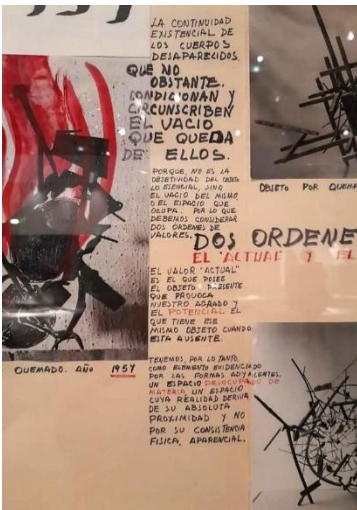 LA CONTINUIDAD
EXISTENCIAL DE
LOS CUERPOS
DESAPARECIDOS.
QUE NO
OBSTANTE.
CONDICIONAN Y
CIRCUNSCRIBEN
EL VACIO
QUE QUEDA
DE ELLOS.
PORQUE, NO ES LA
OBJETIVIDAD DEL OBJETO
LO ESENCIAL, SINO
EL VACIO DEL MISMO,
O EL ESPACIO QUE
OCUPA. POR LO QUE
DEBEMOS CONSIDERAR
DOS ORDENES DE
VALORES.
OBJETO POR QUEMA
DOS ORDENE
EL "ACTUAL" Y EL
EL VALOR "ACTUAL"
ES EL QUE POSEE
EL OBJETO PRESENTE
QUE PROVOCA
NUESTRO AGRADO Y
EL POTENCIAL EL
QUE TIENE ESE
MISMO OBJETO CUANDO
ESTA AUSENTE.
QUEMADO. AÑO 1954
TENEMOS, POR LO TANTO,
COMO ELEMENTO EVIDENCIADO
POR LAS FORMAS ADYACENTES,
UN ESPACIO DESOCUPADO DE
MATERIA, UN ESPACIO
CUYA REALIDAD DERIVA
DE SU ABSOLUTA
PROXIMIDAD Y NO
POR SU CONSISTENCIA
FISICA, APARENCIAL.